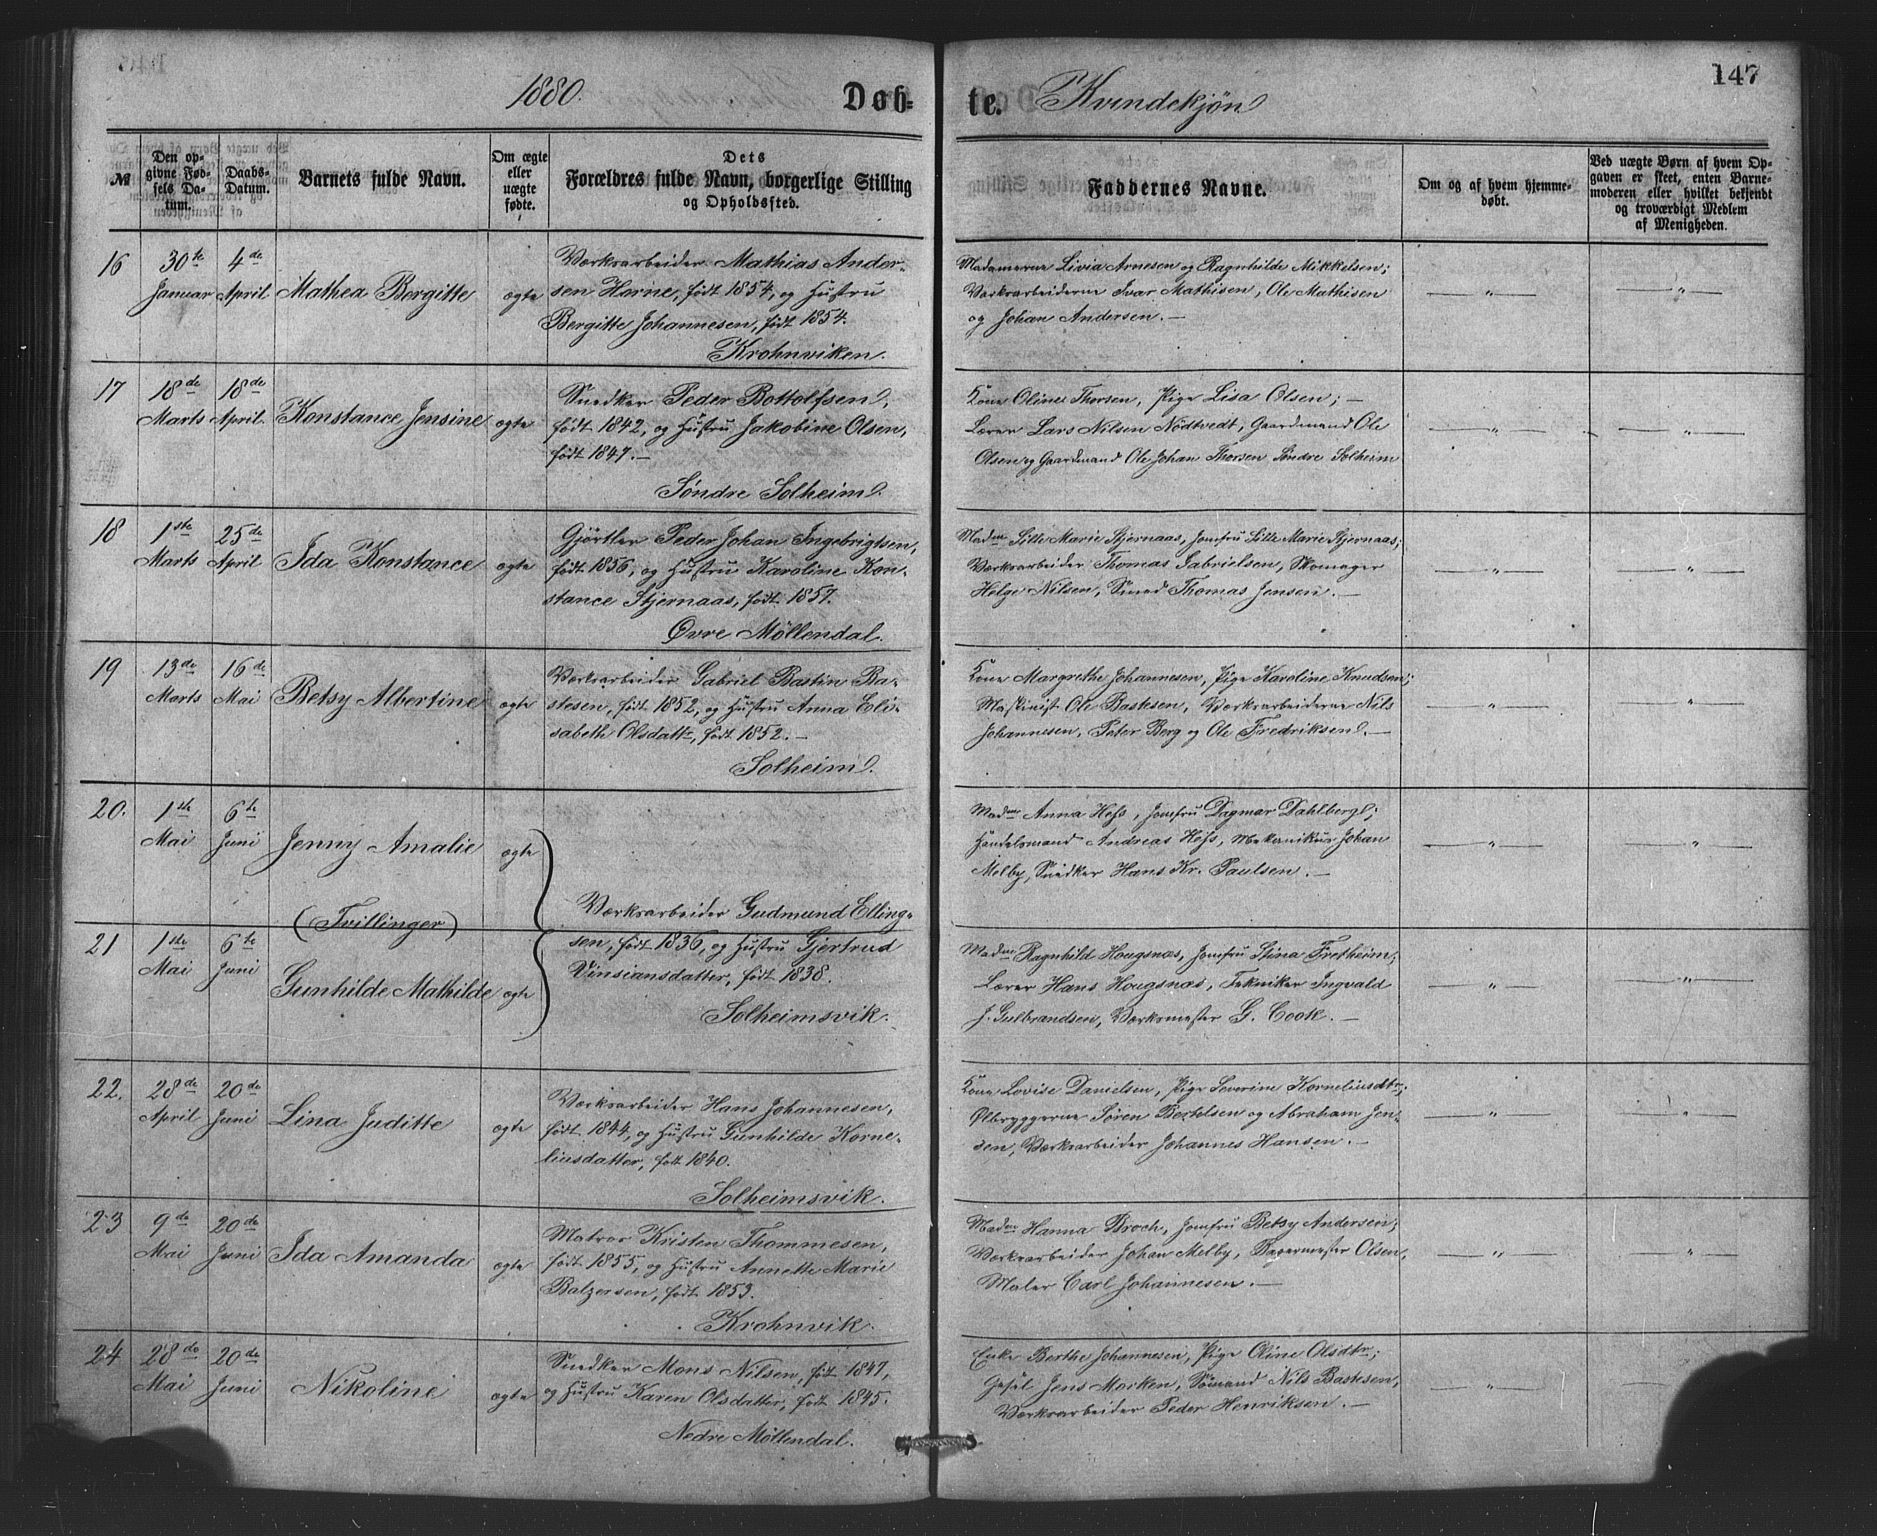 147
1880.
Døb-
te.
Kvindekjøn
№
Den op-
givne Fød-
sels Da-
tum.
Daabs-
Datum.
Barnets fulde Navn.
Om ægte
eller
uægte
fødte.
Dets
Forældres fulde Navn, borgerlige Stilling
og Opholdssted.
Faddernes Navne.
Om og af hvem hjemme-
døbt.
Ved uægte Børn af hvem Op-
gaven er skeet, enten Barne-
moderen eller hvilket bekjendt
og troværdigt Medlem
af Menigheden.
16
30te
Januar
4de
April
Mathea Bergitte
ægte
Værksarbeider Mathias Ander-
sen Horne, født 1854, og Hustru
Bergitte Johannesen, født 1854.
Krohnviken.
Madamerne Livia Arnesen og Ragnhilde Mikkelsen;
Værksarbeiderne Ivar Mathisen, Ole Mathisen
og Johan Andersen. —
— „ —
— „ —
17
18de
Marts
18de
April.
Konstance Jensine
ægte
Snedker Peder Bottolfsen,
født 1842, og Hustru Jakobine Olsen,
født 1847. —
Søndre Solheim.
Kone Oline Thorsen, Pige Lisa Olsen; —
Lærer Lars Nilsen Nødtvedt, Gaardmand Ole
Olsen og Gaardmand Ole Johan Thorsen Søndre Solheim
— „ —
— „ —
18
1ste
Marts
25de
April
Ida Konstance
ægte
Gjørtler Peder Johan Ingebrigtsen,
født 1856, og Hustru Karoline Kon-
stance Stjernaas, født 1857.
Øvre Møllendal.
Madm Sille Marie Stjernaas, Jomfru Sille Marie Stjernaas;
Værksarbeider Thomas Gabrielsen, Skomager
Helge Nilsen, Smed Thomas Jensen. —
— „ —
— „ —
19
13de
Marts
16de
Mai
Betsy Albertine
ægte
Værksarbeider Gabriel Bastin Ba-
stesen, født 1852, og Hustru Anna Eli-
sabeth Olsdattr, født 1852. —
Solheim.
Kone Margrethe Johannesen, Pige Karoline Knudsen;
Maskinist Ole Bastesen, Værksarbeiderne Nils
Johannesen, Peter Berg og Ole Fredriksen. —
— „ —
— „ —
20.
1ste
Mai
6te
Juni
Jenny Amalie
ægte
(Tvillinger)
Madm Anna Hess, Jomfru Dagmar Dahlberg;
Handelsmand Andreas Hess, Mekanikus Johan
Melby, Snedker Hans Kr. Paulsen. —
— „ —
— „ —
Værksarbeider Gudmund Elling-
sen, født 1836, og Hustru Gjertrud
Vinsiansdatter, født 1838.
Solheimsvik.
21
1ste
Mai
6te
Juni
Gunhilde Mathilde
ægte
Madm Ragnhild Hougsnæs, Jomfru Stina Fretheim;
Lærer Hans Hougsnæs, Tekniker Ingvald
J. Gulbrandsen, Værksmester G. Cook. —
— „ —
— „ —
22.
28de
April
20de
Juni
Lina Juditte
ægte
Værksarbeider Hans Johannesen,
født 1844, og Hustru Gunhilde Korne-
liusdatter, født 1840.
Solheimsvik.
Kone Lovise Danielsen, Pige Severine Korneliusdtr;
Ølbryggerne Søren Bertelsen og Abraham Jen-
sen, Værksarbeider Johannes Hansen. —
— „ —
— „ —
23
9de
Mai
20de
Juni
Ida Amanda
ægte
Matros Kristen Thommesen,
født 1855, og Hustru Annette Marie
Balzersen, født 1853.
Krohnvik.
Madm Hanna Broch, Jomfru Betsy Andersen;
Værksarbeider Johan Melby, Bagermester Olsen,
Maler Carl Johannesen. —
— „ —
— „ —
24
28de
Mai
20de
Juni
Nikoline
ægte
Snedker Mons Nilsen, født 1847,
og Hustru Karen Olsdatter, født 1845.
Nedre Møllendal.
Enke Berthe Johannesen, Pige Oline Olsdtr;
Gesel Jens Morken, Sømand Nils Bastesen,
Værksarbeider Peder Henriksen. —
— „ —
— „ —